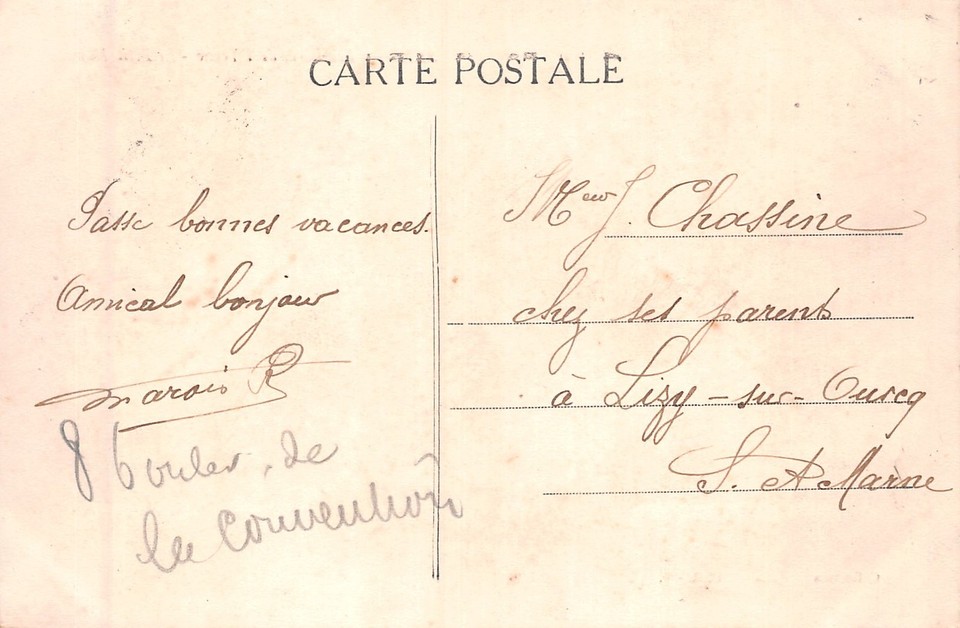 CARTE POSTALE
Passe bonnes vacances.
Amical bonjour
Marois R
8 boulev. de
la Convention
J. Chassine
chez ses parents
à Lizy-sur-Ourcq
S. et Marne